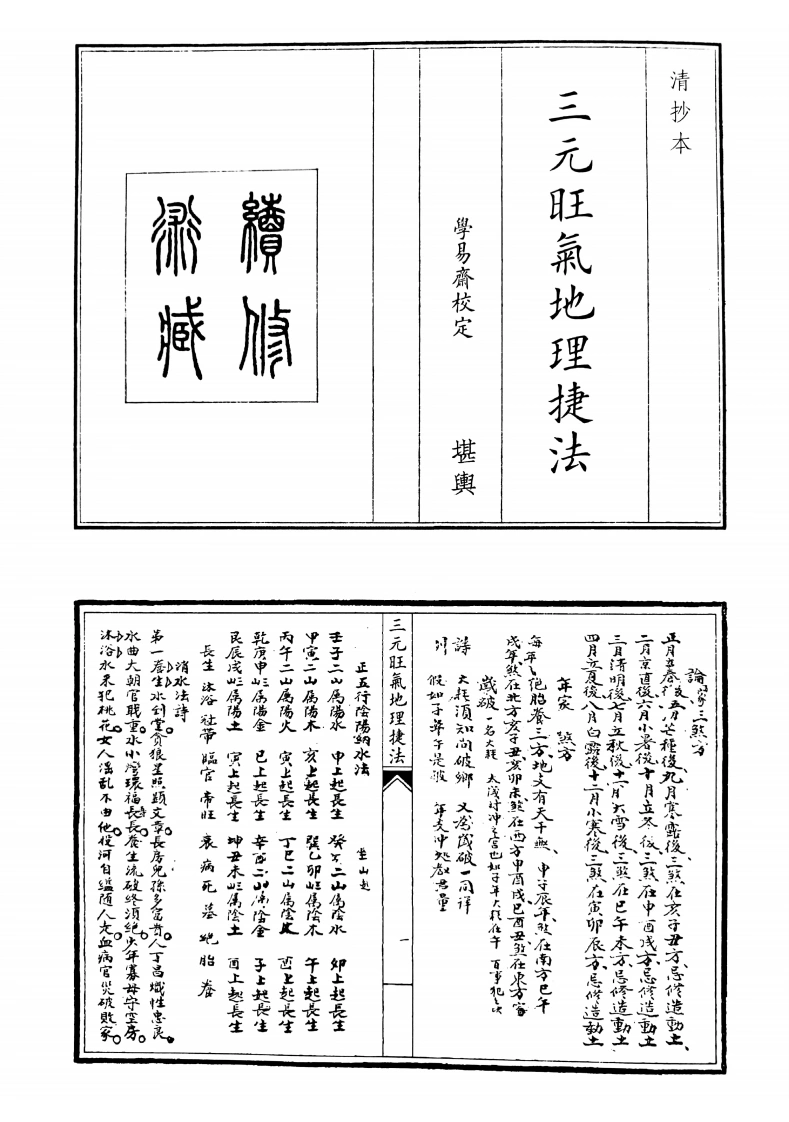 清抄本
三元旺氣地理捷法
學易齋校定 堪輿
續修
術藏
論三煞方
正月立春後五月芒種後九月寒露後三煞在亥子丑方忌修造動土
二月京直後六月小暑後十月立冬後三煞在申酉戌方忌修造動土
三月清明後七月立秋後十一月大雪後三煞在巳午未方忌修造動土
四月立夏後八月白露後十二月小寒後三煞在寅卯辰方忌修造動土
年家 煞方
每年絕胎養三方地支有天干無 申子辰年煞在南方巳午
戌年煞在北方亥子丑亥卯未煞在西方申酉戌巳酉丑煞在東方寅
歲破 一名大耗 太歲對冲之宮也如子年大耗在午 百事犯之凶
詩 大耗須知向破鄉 又為歲破一同詳
假如子年午是破 年支冲處君量
三元旺氣地理捷法
一
正五行陰陽納水法 坐山起
壬子二山屬陽水 申上起長生 癸亥二山屬陰水 卯上起長生
甲寅二山屬陽木 亥上起長生 巽乙卯三山屬陰木 午上起長生
丙午二山屬陽火 寅上起長生 丁巳二山屬陰火 酉上起長生
乾庚申三山屬陽金 巳上起長生 辛酉二山屬陰金 子上起長生
艮辰戌三山屬陽土 寅上起長生 坤丑未三山屬陰土 酉上起長生
長生 沐浴 冠帶 臨官 帝旺 衰 病 死 墓 絕 胎 養
消水法詩
第一養生水到堂貪狼星照顯文章長房兒孫多富貴人丁昌熾性忠良
水曲大朝官職重水小灣環福長長養生流破終須絕少年寡母守空房
沐浴水來犯桃花女人淫亂不由他投河自縊隨人走血病官災破敗家